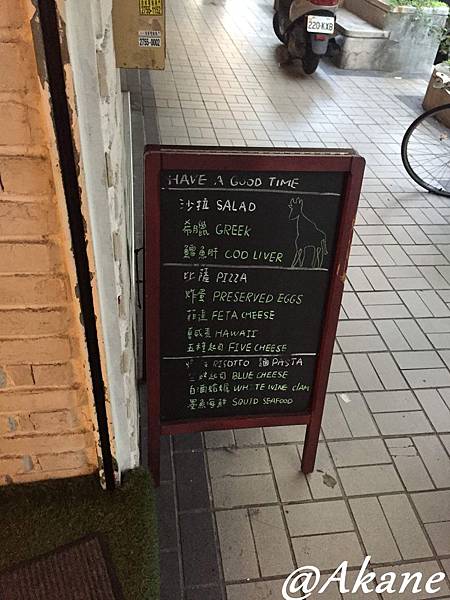 220·KXB
2755-0002
HAVE A GOOD TIME
沙拉 SALAD
希臘 GREEK
鱈魚肝 COD LIVER
比薩 PIZZA
PRESERVED EGGS
菲達 FETA CHEESE
夏威夷 HAWAII
五種起司 FIVE CHEESE
RISOTTO 麵 PASTA
起司 BLUE CHEESE
白酒蛤蠣 WHITE WINE CLAM
墨魚海鮮 SQUID SEAFOOD
@Akane